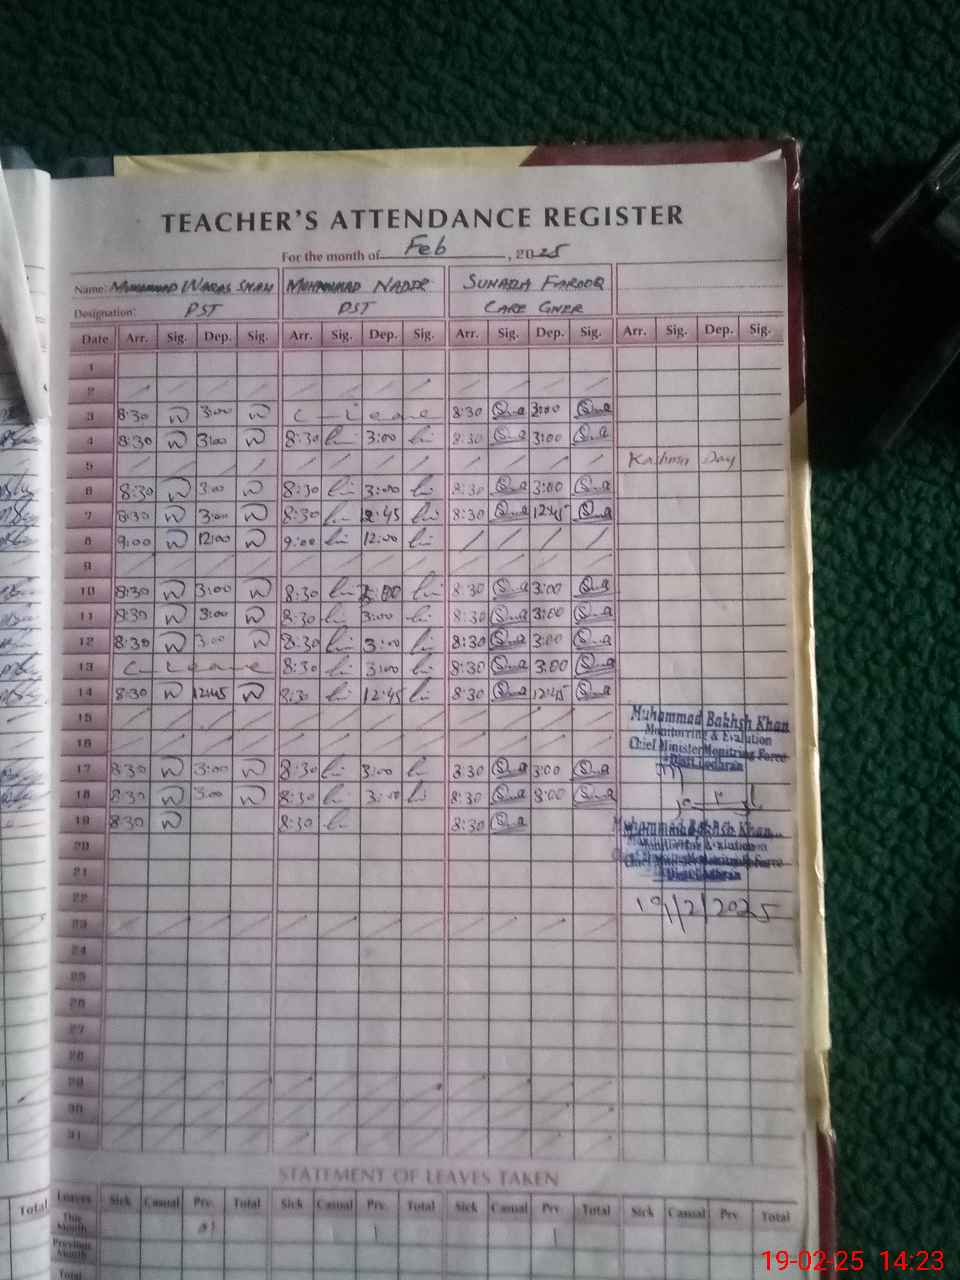 TEACHER'S ATTENDANCE REGISTER
For the month of Feb, 2025
Name: MUHAMMAD WARAS SHAH MUHAMMAD NADIR SUNABIA FAROOQ
Designation: PST PST CARE GIVER
Date Arr. Sig. Dep. Sig. Arr. Sig. Dep. Sig. Arr. Sig. Dep. Sig. Arr. Sig. Dep. Sig.
1
2
3 8:30 3:00 C - Leave 8:30 3:00
4 8:30 3:00 8:30 3:00 8:30 3:00
5 Kashmir Day
6 8:30 3:00 8:30 3:00 8:30 3:00
7 8:30 3:00 8:30 12:45 8:30 12:45
8 9:00 12:00 9:00 12:00
9
10 8:30 3:00 8:30 3:00 8:30 3:00
11 8:30 3:00 8:30 3:00 8:30 3:00
12 8:30 3:00 8:30 3:00 8:30 3:00
13 C - Leave 8:30 3:00 8:30 3:00
14 8:30 12:45 8:30 12:45 8:30 12:45
15
Muhammad Bakhsh Khan
16
Monitoring & Evalution
Chief Minister Monitring Force
Distt Lodhran
17 8:30 3:00 8:30 3:00 8:30 3:00
18 8:30 3:00 8:30 3:00 8:30 3:00
19 8:30 8:30 8:30
Muhammad Bakhsh Khan
20
Monitoring & Evalution
21
Chief Minister Monitring Force
Distt Lodhran
22
19/2/2025
23
24
25
26
27
28
29
30
31
STATEMENT OF LEAVES TAKEN
Total Leaves Sick Casual Prv. Total Sick Casual Prv. Total Sick Casual Prv. Total Sick Casual Prv. Total
This Month 1 1
Previous Month
Total
19-02-25 14:23